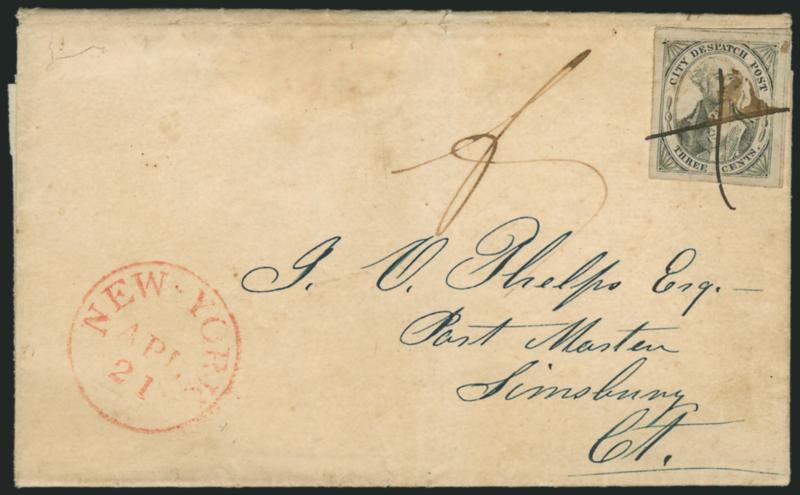 CITY DESPATCH POST
THREE CENTS.
J. O. Phelps Esq.
Post Master
Simsbury
Ct.
NEW-YORK
APL
21